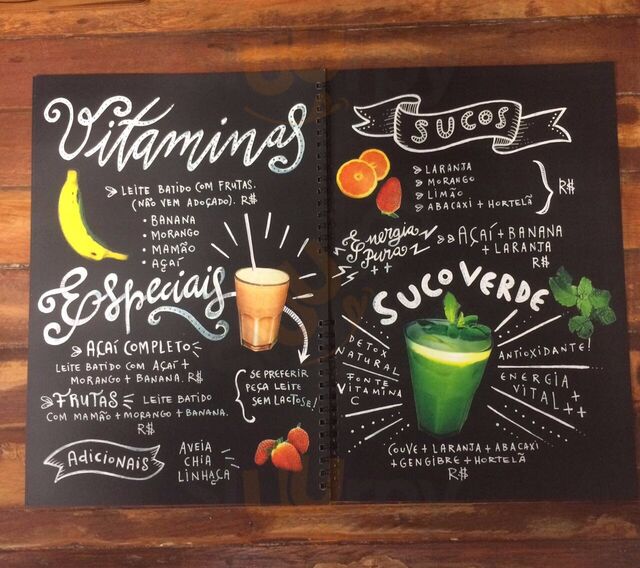 Vitaminas
LEITE BATIDO COM FRUTAS.
(NÃO VEM ADOÇADO). R$
• BANANA
• MORANGO
• MAMÃO
• AÇAÍ
Especiais
AÇAÍ COMPLETO
LEITE BATIDO COM AÇAÍ +
MORANGO + BANANA. R$
FRUTAS LEITE BATIDO
COM MAMÃO + MORANGO + BANANA.
R$
SE PREFERIR
PEÇA LEITE
SEM LACTOSE!
ADICIONAIS
AVEIA
CHIA
LINHAÇA
SUCOS
LARANJA
MORANGO
LIMÃO
ABACAXI + HORTELÃ
R$
Energia
Pura
++
AÇAÍ + BANANA
+ LARANJA
R$
SUCO VERDE
DETOX
NATURAL
FONTE
VITAMINA
C
ANTIOXIDANTE!
ENERGIA
VITAL +
++
COUVE + LARANJA + ABACAXI
+ GENGIBRE + HORTELÃ
R$